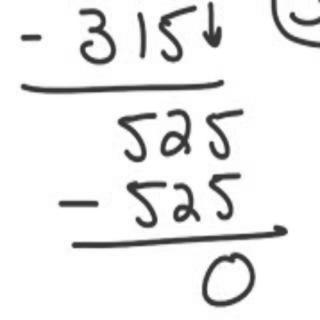 - 315↓
525
- 525
0